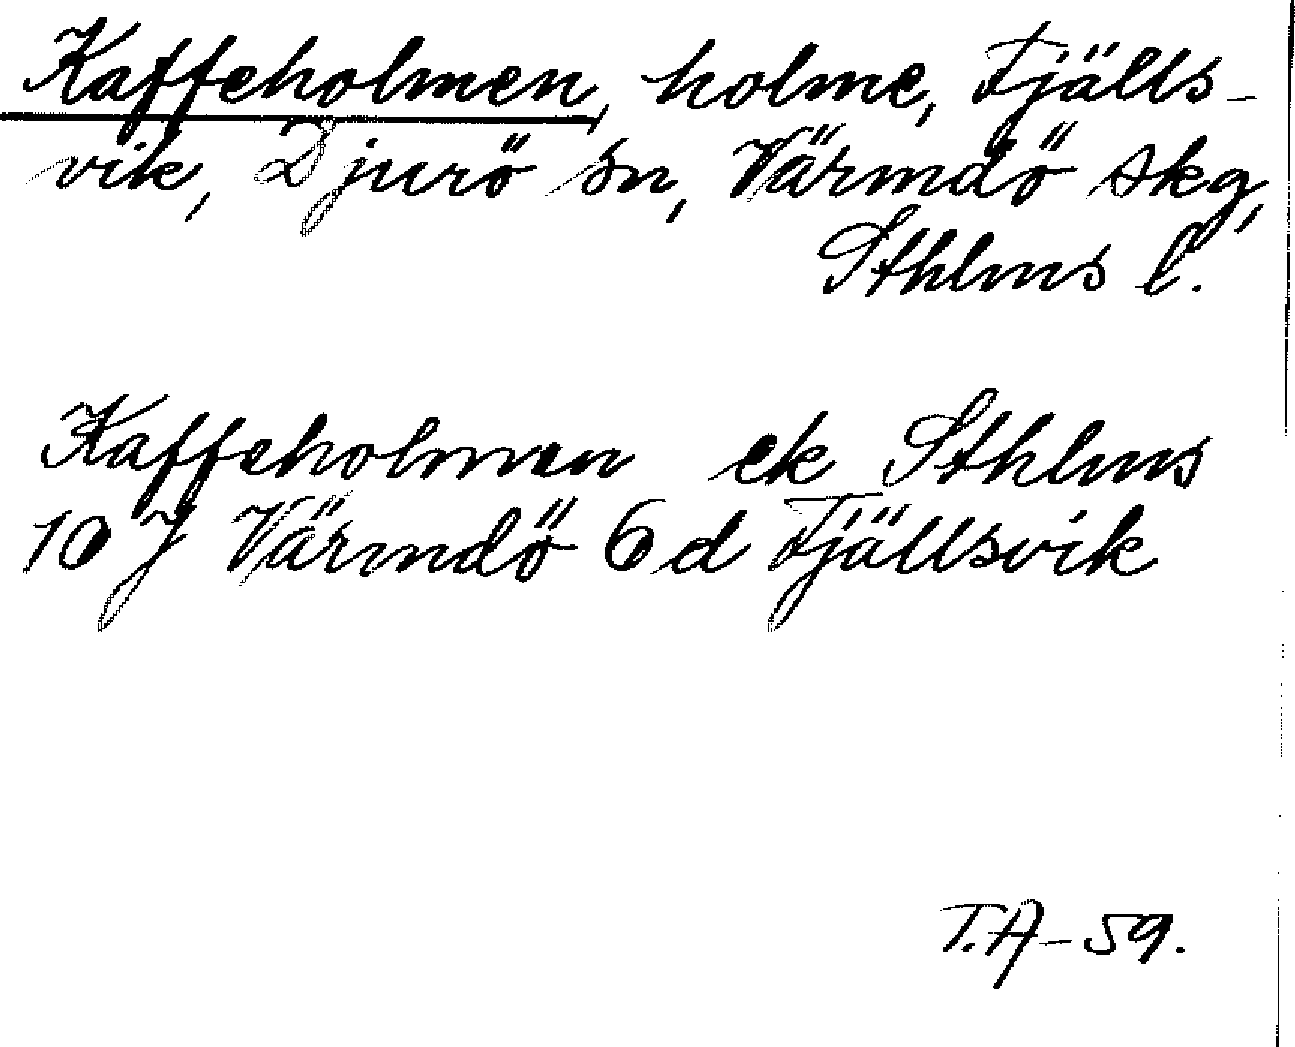 Kaffeholmen, holme, Fjälls-
vik, Djurö sn, Värmdö skg,
Sthlms l.
Kaffeholmen ek Sthlms
10 J Värmdö 6 d Fjällsvik
T.A-59.